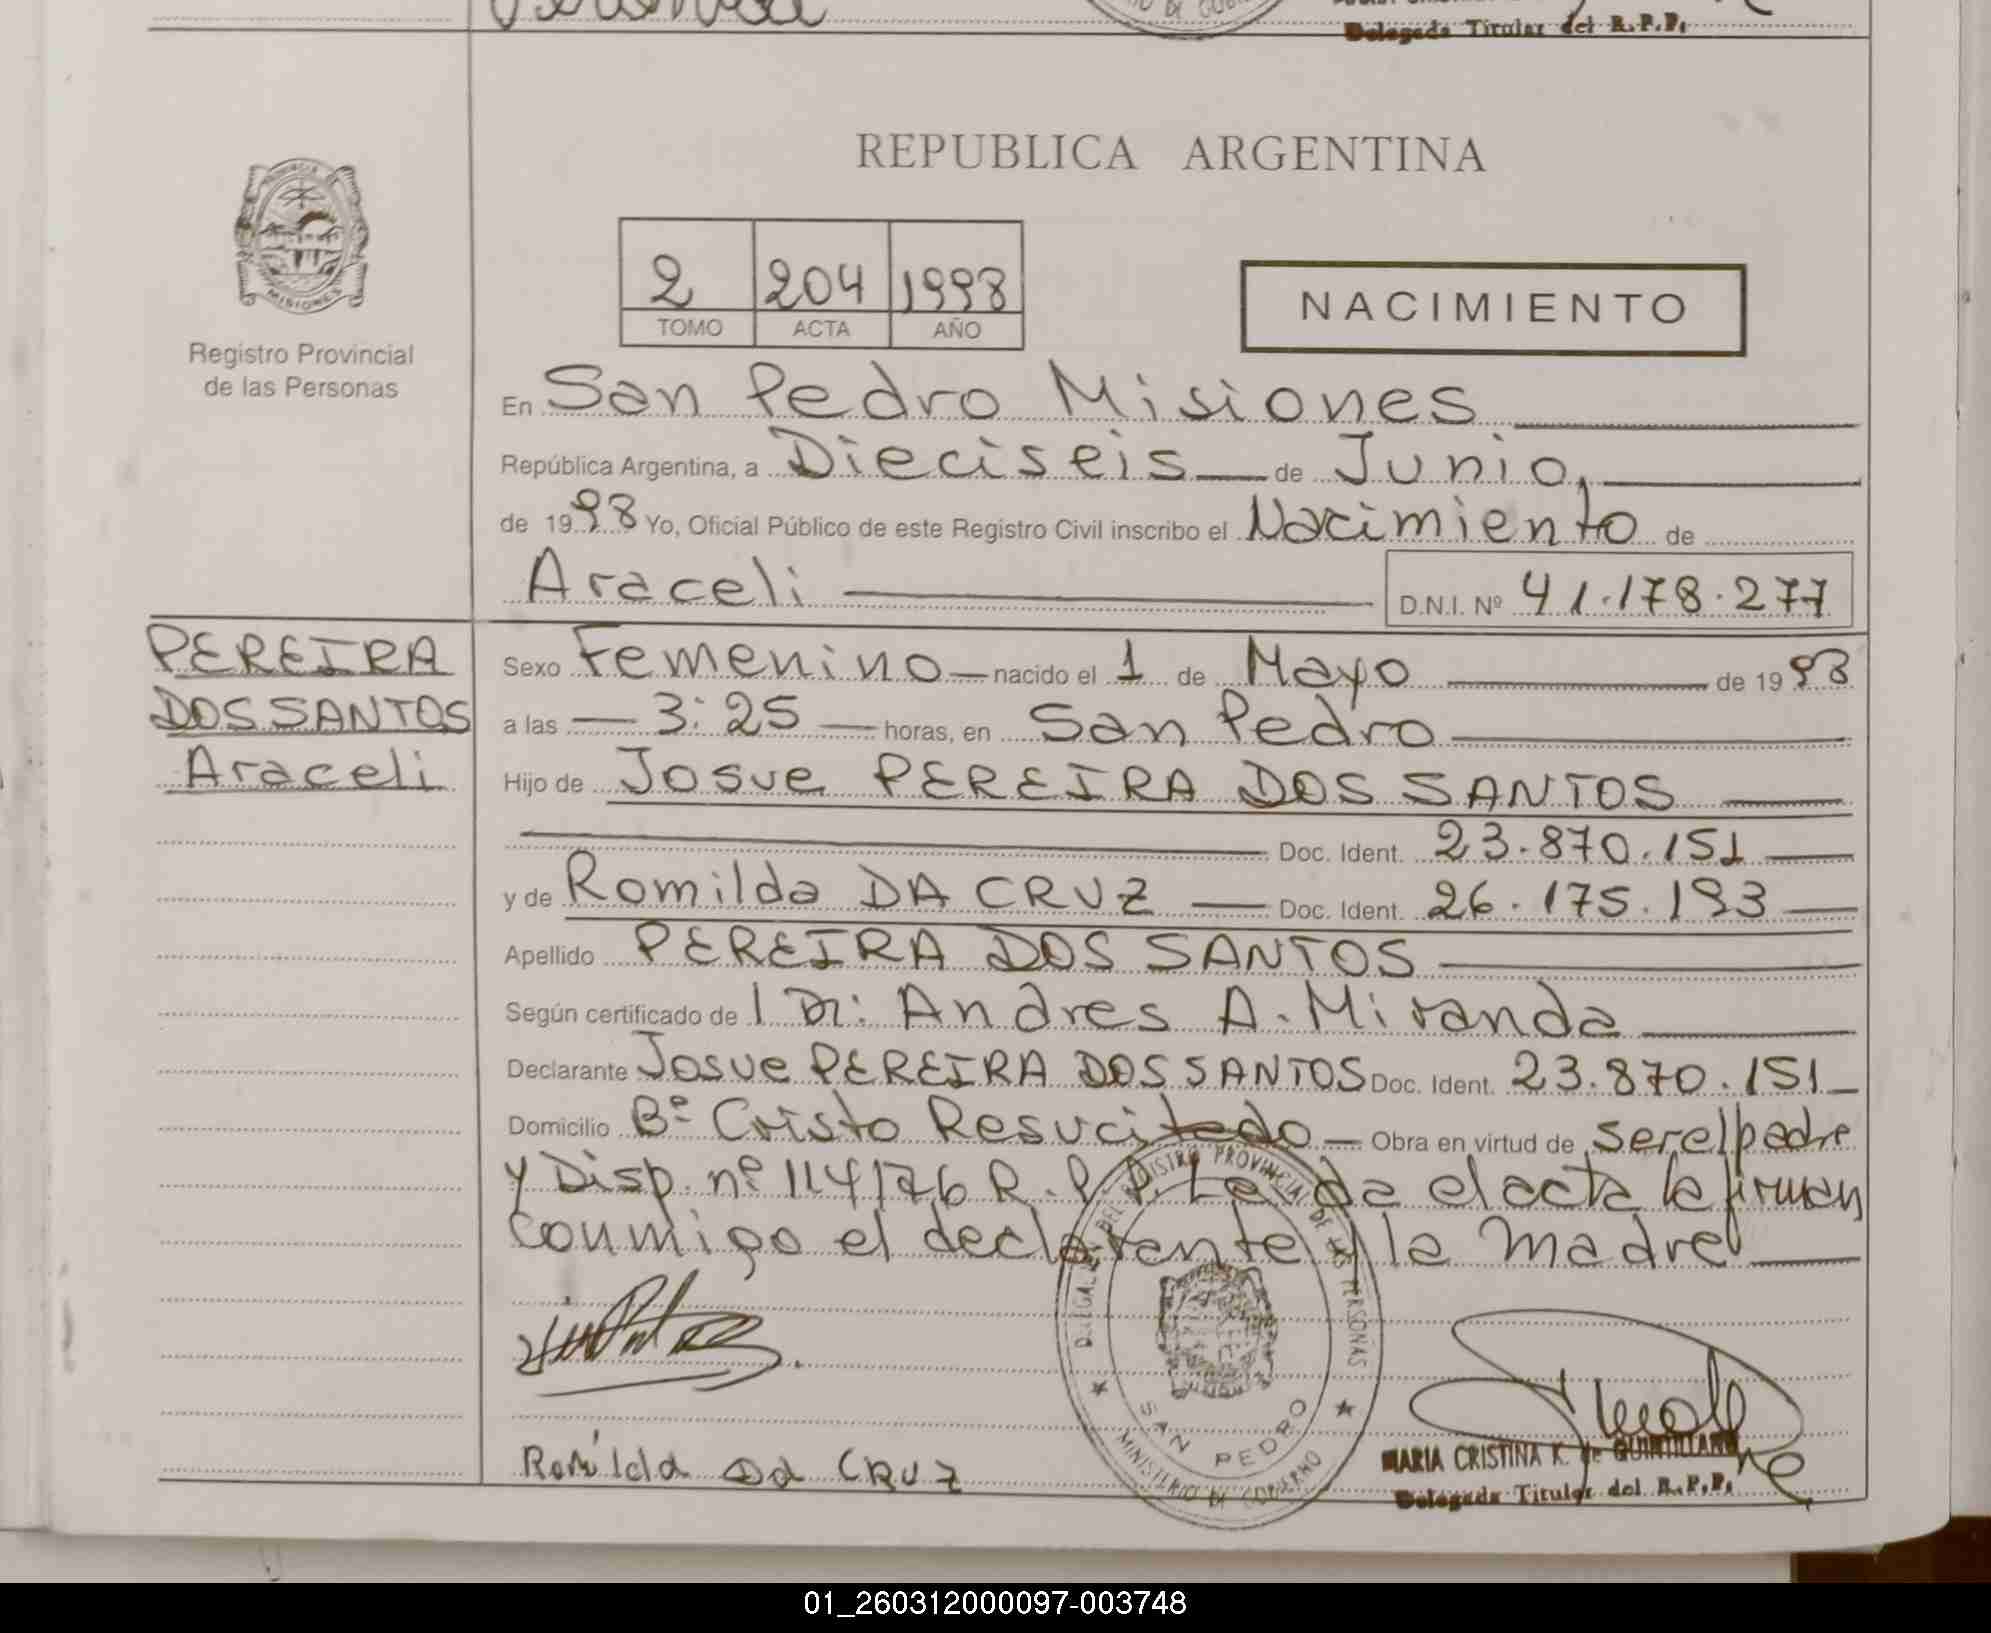 Delegada Titular del R.P.P.
REPUBLICA ARGENTINA
PROVINCIA DE
MISIONES
Registro Provincial
de las Personas
2 204 1998
TOMO ACTA AÑO
NACIMIENTO
En San Pedro Misiones
República Argentina, a Dieciseis de Junio,
de 1998 Yo, Oficial Público de este Registro Civil inscribo el Nacimiento de
Araceli D.N.I. Nº 41.178.277
PEREIRA
DOS SANTOS
Araceli
Sexo Femenino nacido el 1 de Mayo de 1998
a las 3:25 horas, en San Pedro
Hijo de Josue PEREIRA DOS SANTOS
Doc. Ident. 23.870.151
y de Romilda DA CRUZ Doc. Ident. 26.175.193
Apellido PEREIRA DOS SANTOS
Según certificado de l Dr: Andres A. Miranda
Declarante Josue PEREIRA DOS SANTOS Doc. Ident. 23.870.151
Domicilio Bº Cristo Resucitado Obra en virtud de ser el padre
y Disp. nº 114/76 R.P.P. Leida el acta la firman
conmigo el declarante y la madre
DELEGACION DEL REGISTRO PROVINCIAL DE LAS PERSONAS
SAN PEDRO
MINISTERIO DE GOBIERNO
Romilda Da CRUZ
MARIA CRISTINA K. de QUINTILLAN
Delegada Titular del R.P.P.
01_260312000097-003748